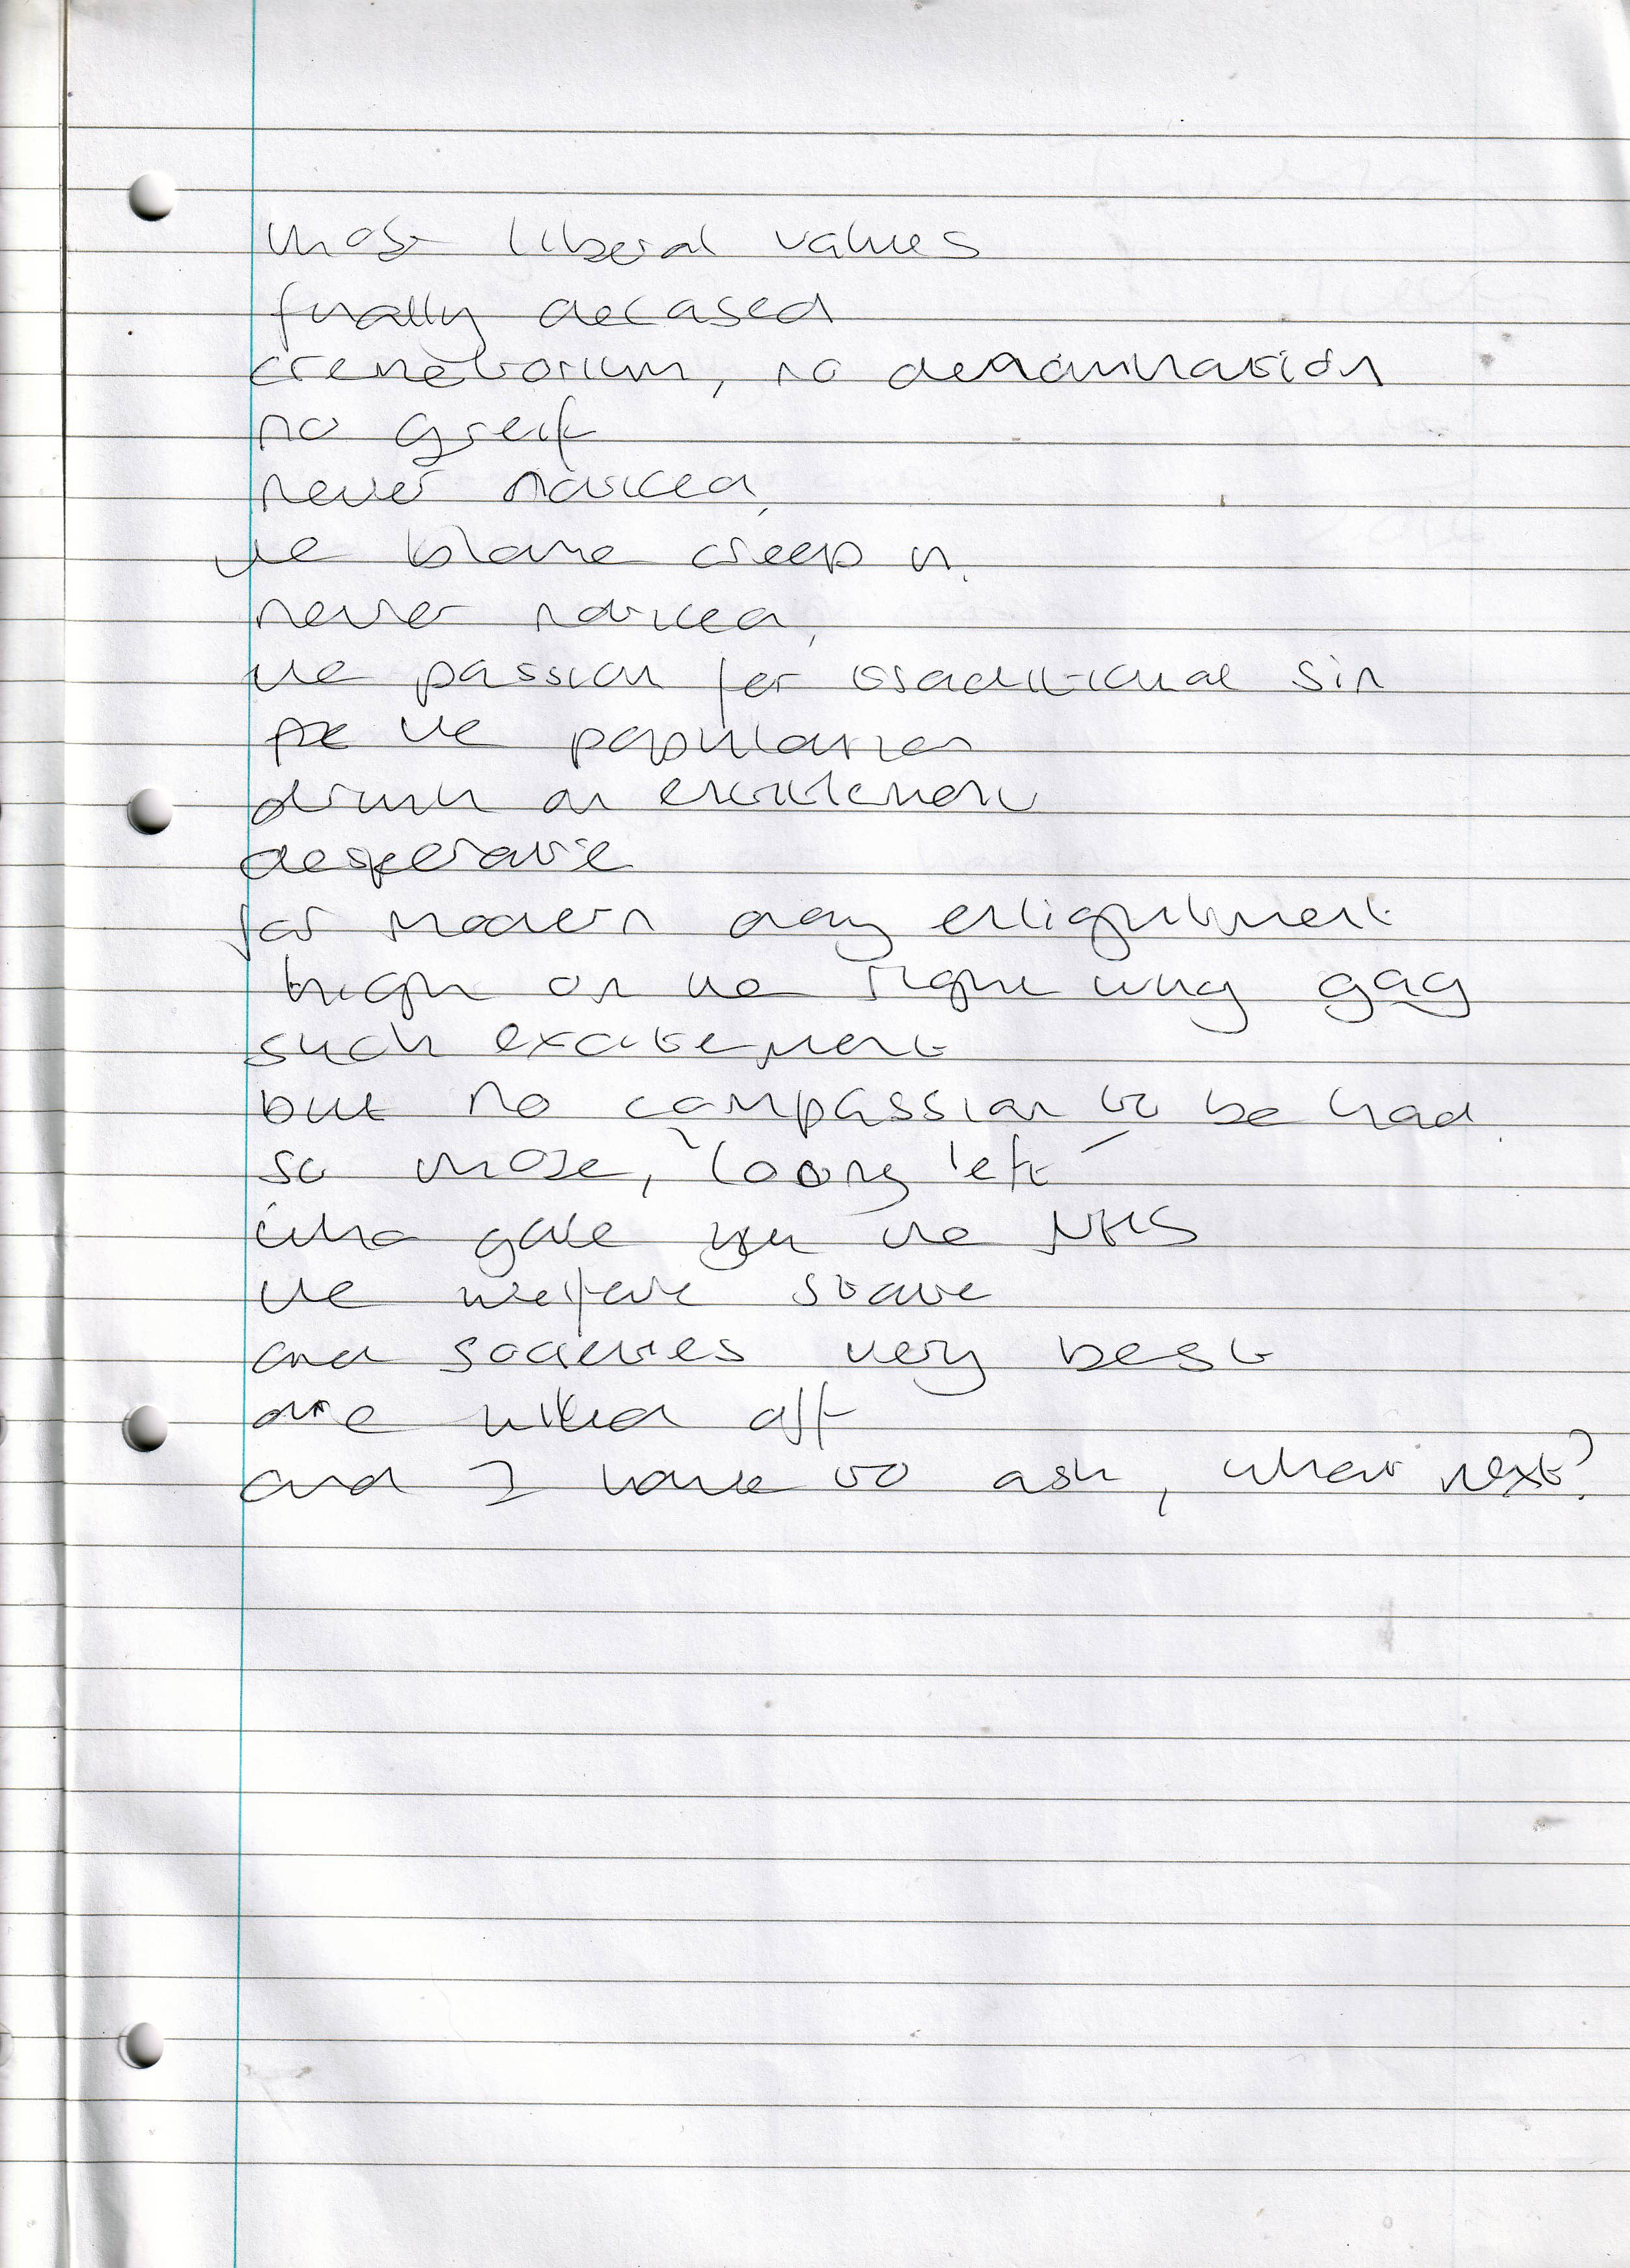 those liberal values
finally decased
crematorium, no denomination
no greif
never noticed,
the blame creep in.
never noticed,
the passion for traditional sin
the population
drunk on excitement
desperate
for modern day enlightment
high on the right wing gag
such excitement
but no compassion to be had.
so those, "loony left"
who gave you the NHS
the welfare state
and societies very best
are killed off
and I have to ask, what next?